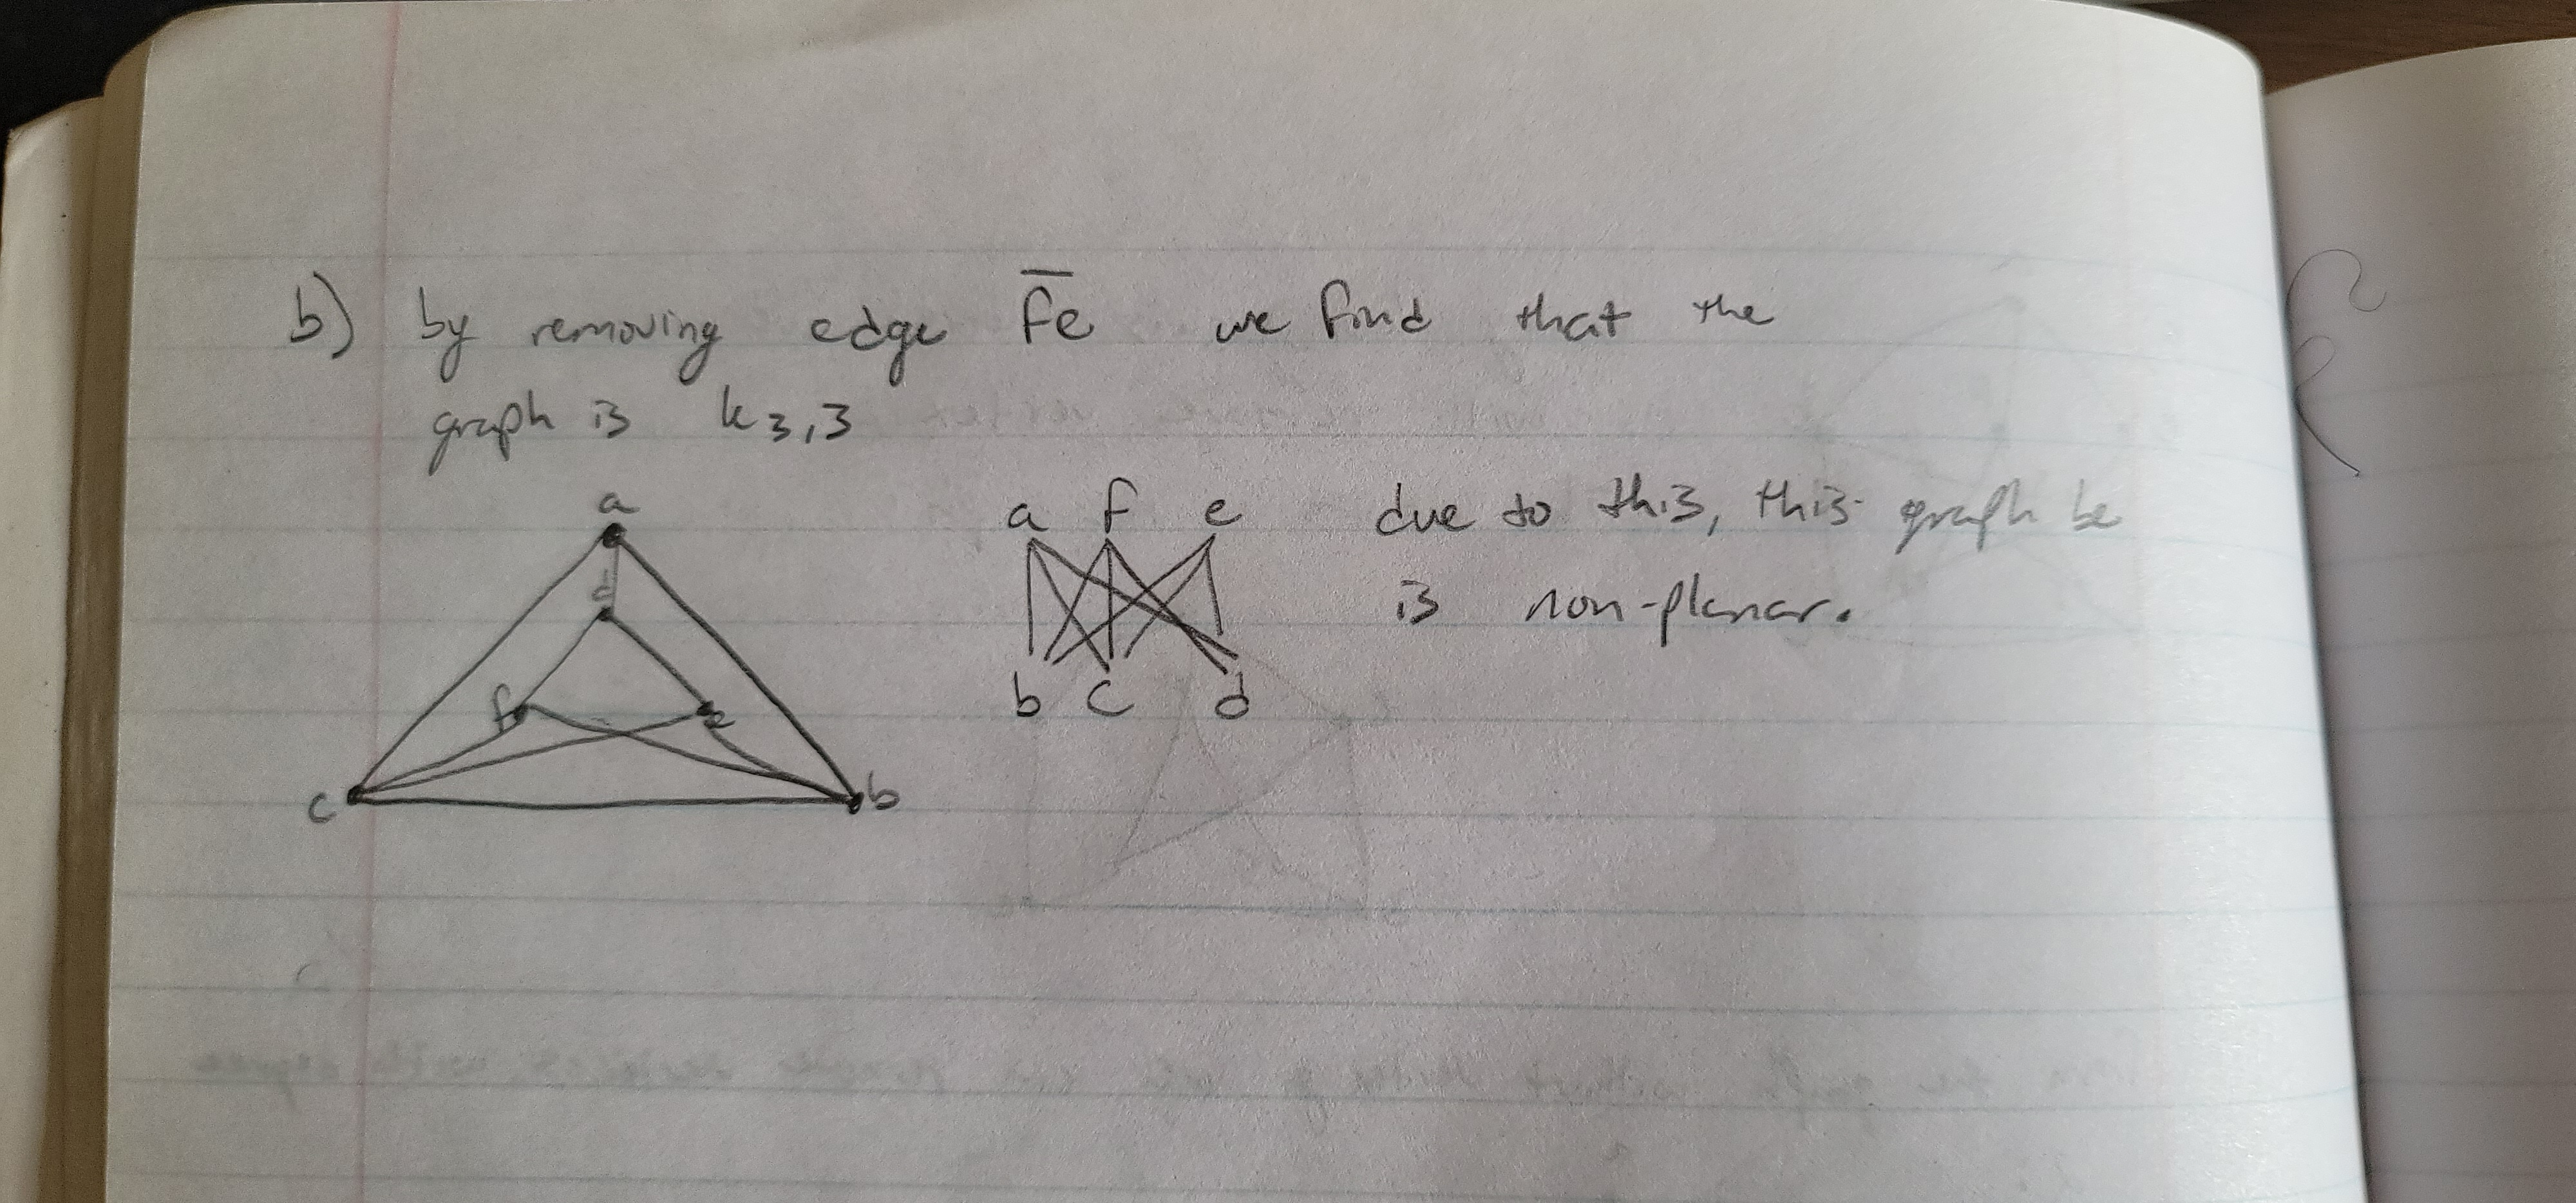 b) by removing edge fe we find that the
graph is k3,3
a
d
f
e
c
b
a f e
b c d
due to this, this graph is
is non-planar.